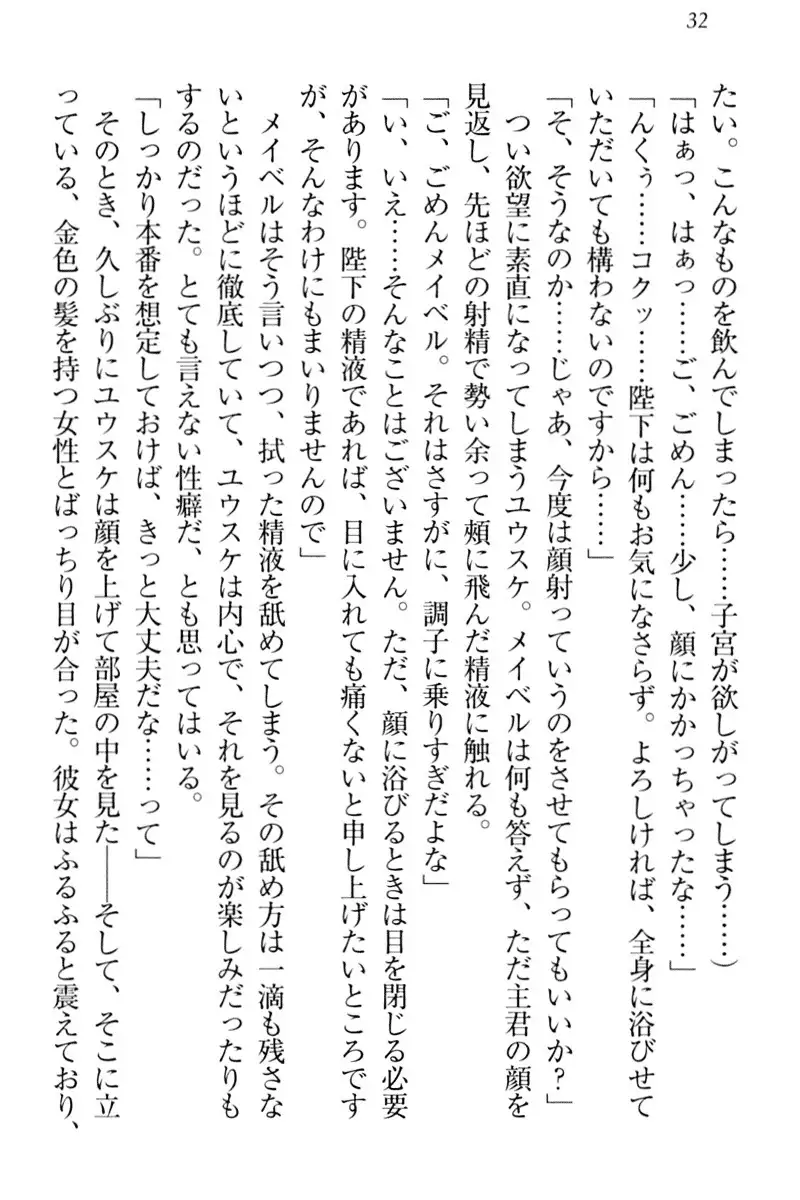 32
たい。こんなものを飲んでしまったら……子宮が欲しがってしまう……）
「はぁっ、はぁっ……ご、ごめん……少し、顔にかかっちゃったな……」
「んくぅ……コクッ……陛下は何もお気になさらず。よろしければ、全身に浴びせて
いただいても構わないのですから……」
「そ、そうなのか……じゃあ、今度は顔射っていうのをさせてもらってもいいか？」
つい欲望に素直になってしまうユウスケ。メイベルは何も答えず、ただ主君の顔を
見返し、先ほどの射精で勢い余って頰に飛んだ精液に触れる。
「ご、ごめんメイベル。それはさすがに、調子に乗りすぎだよな」
「い、いえ……そんなことはございません。ただ、顔に浴びるときは目を閉じる必要
があります。陛下の精液であれば、目に入れても痛くないと申し上げたいところです
が、そんなわけにもまいりませんので」
メイベルはそう言いつつ、拭った精液を舐めてしまう。その舐め方は一滴も残さな
いというほどに徹底していて、ユウスケは内心で、それを見るのが楽しみだったりも
するのだった。とても言えない性癖だ、とも思ってはいる。
「しっかり本番を想定しておけば、きっと大丈夫だな……って」
そのとき、久しぶりにユウスケは顔を上げて部屋の中を見た――そして、そこに立
っている、金色の髪を持つ女性とばっちり目が合った。彼女はふるふると震えており、